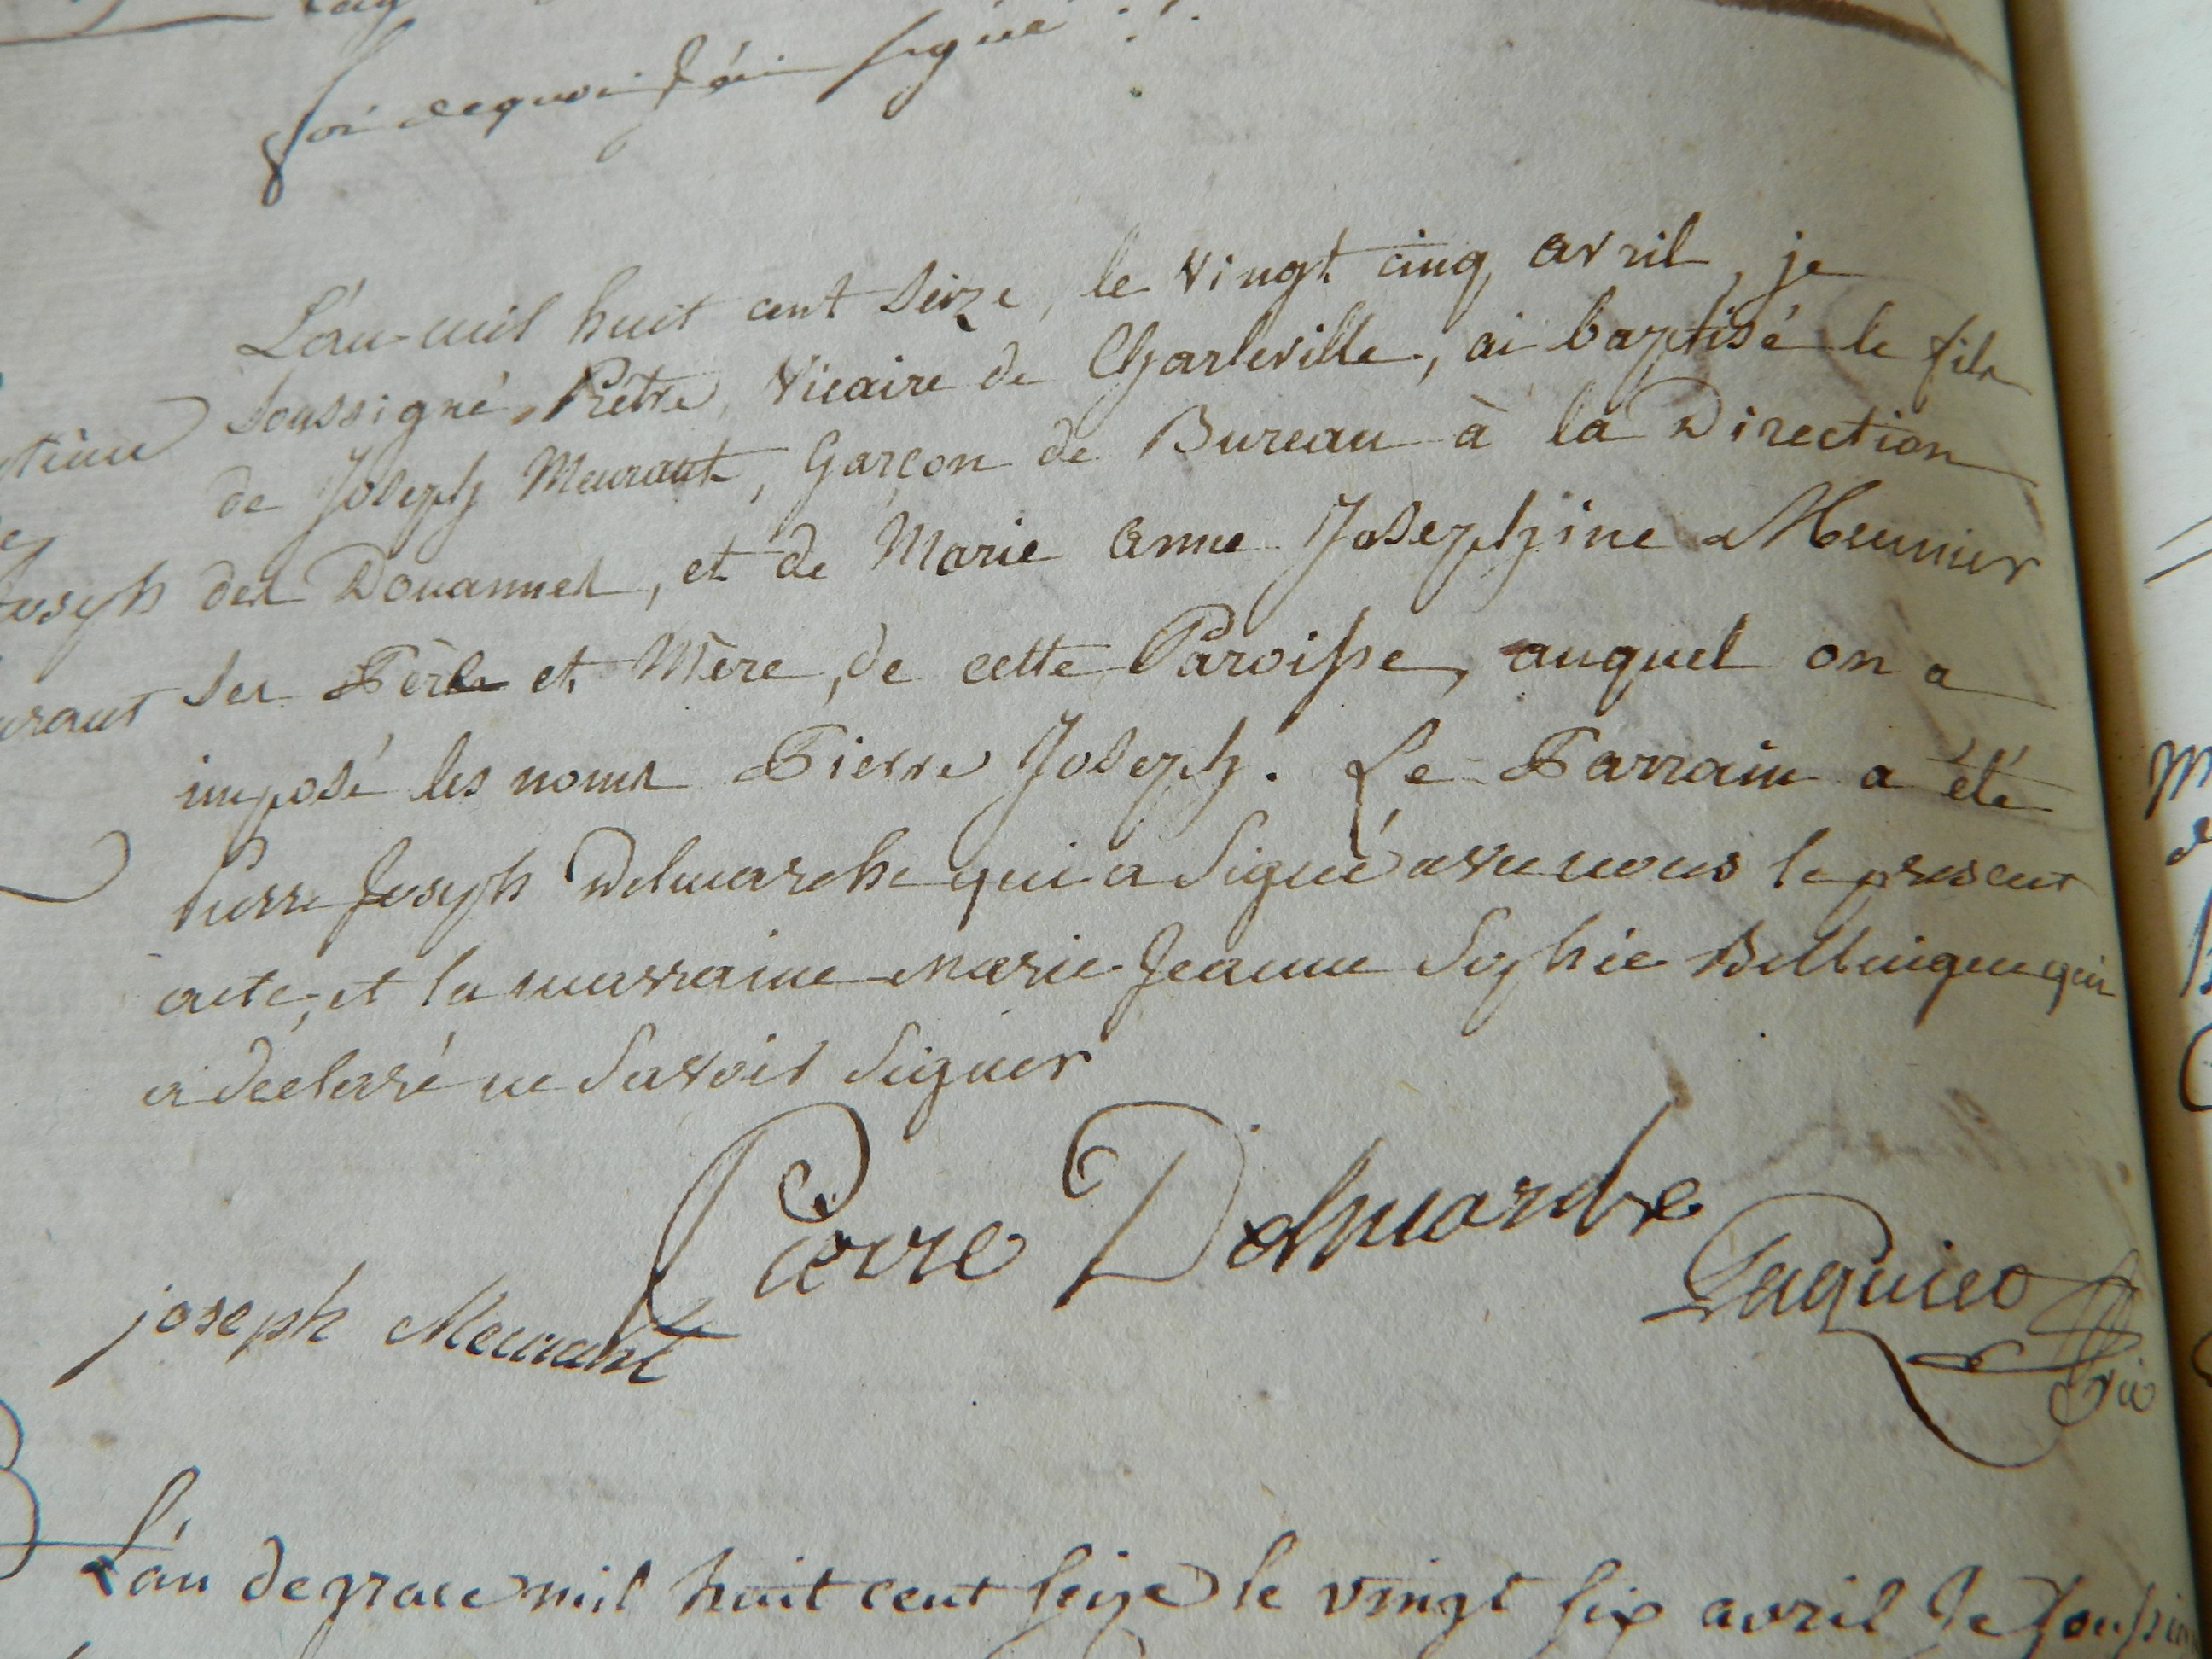 foi de quoi j'ai signé
L'an mil huit cent Seize, le vingt cinq avril, je
Soussigné, Prêtre, Vicaire de Charleville, ai baptisé le fils
de Joseph Meurant, Garçon de Bureau à la Direction
Joseph des Douannes, et de Marie anne Josephine Meunier
Ses Père et Mère, de cette Paroisse, auquel on a
imposé les noms Pierre Joseph. Le Parrain a été
Pierre Joseph Delmarche qui a Signé avec nous le présent
acte, et la marraine Marie Jeanne Sophie qui
a declaré ne Savoir Signer
Pierre Delmarche
joseph Meurant
L'an de grace mil huit cent seize le vingt six avril je